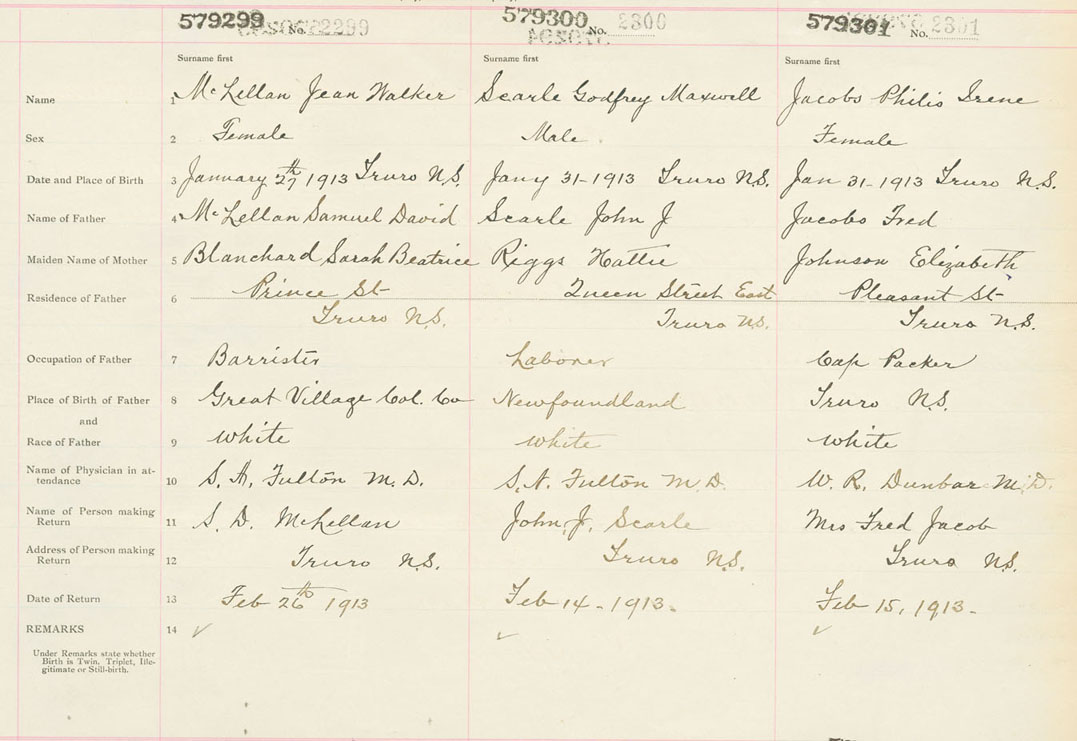 579299 No. 22299 579300 No. 2300 579301 No. 2301
Surname first Surname first Surname first
Name 1 McLellan Jean Walker Searle Godfrey Maxwell Jacobs Philis Irene
Sex 2 Female Male Female
Date and Place of Birth 3 January 27th 1913 Truro N.S. Jany 31-1913 Truro N.S. Jan 31-1913 Truro N.S.
Name of Father 4 McLellan Samuel David Searle John J Jacobs Fred
Maiden Name of Mother 5 Blanchard Sarah Beatrice Riggs Hattie Johnson Elizabeth
Residence of Father 6 Prince St Queen Street East Pleasant St
Truro N.S. Truro N.S. Truro N.S.
Occupation of Father 7 Barrister Laborer Cap Packer
Place of Birth of Father 8 Great Village Col. Co Newfoundland Truro N.S.
and
Race of Father 9 white white white
Name of Physician in at-
tendance 10 S. A. Fulton M.D. S. A. Fulton M.D. W. R. Dunbar M.D.
Name of Person making
Return 11 S. D. McLellan John J. Searle Mrs Fred Jacob
Address of Person making
Return 12 Truro N.S. Truro N.S. Truro N.S.
Date of Return 13 Feb 26th 1913 Feb 14-1913. Feb 15, 1913.
REMARKS 14 ✓ ✓ ✓
Under Remarks state whether
Birth is Twin, Triplet, Ille-
gitimate or Still-birth.